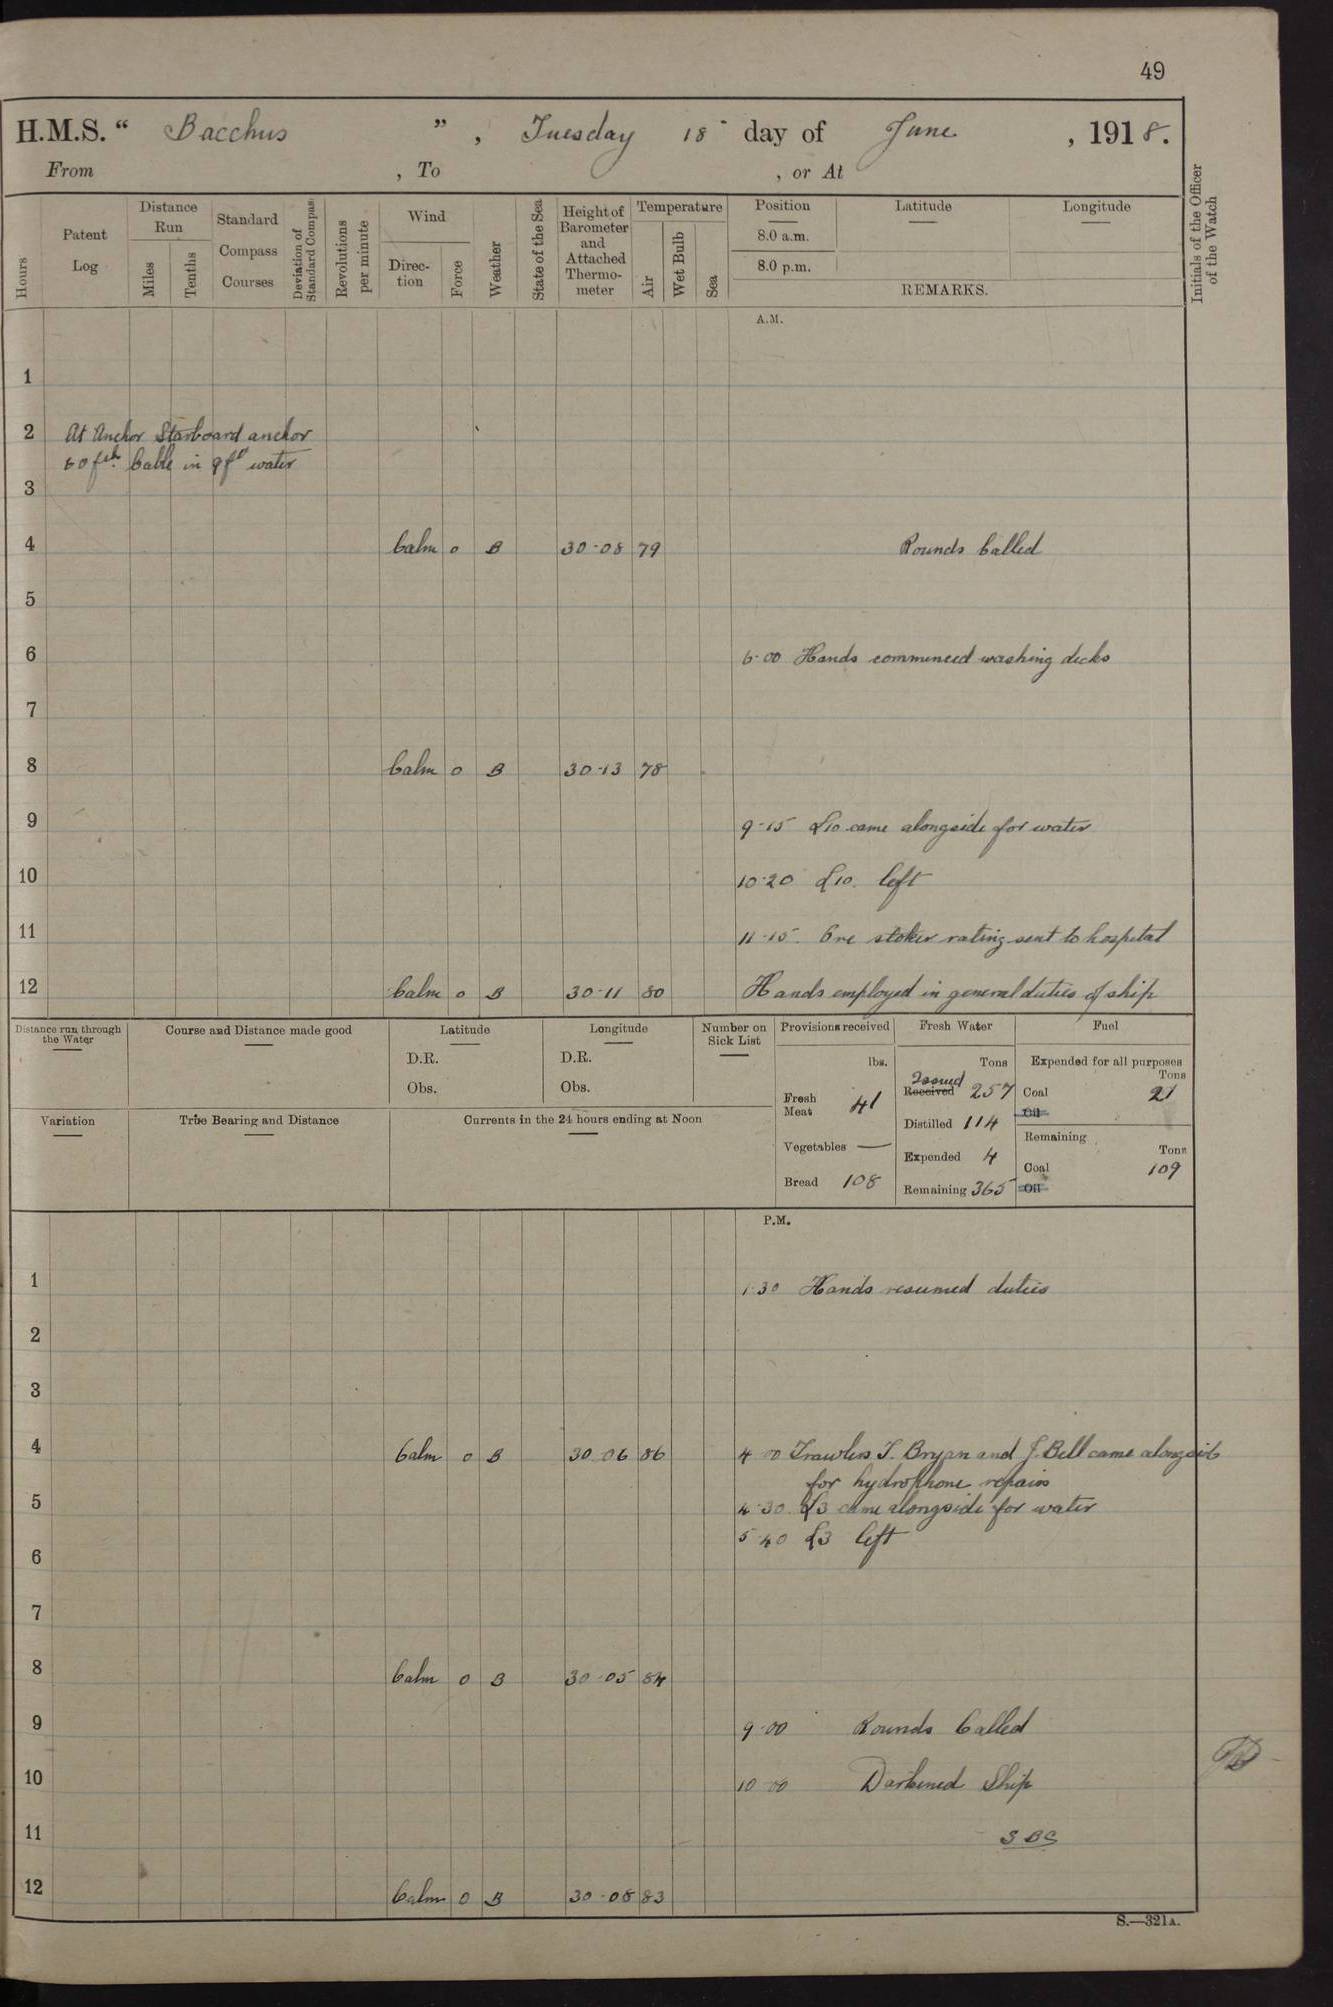 49
H.M.S. “ Bacchus ” , Tuesday 18 day of June , 1918.
From , To , or At
Hours
Patent Log
Distance Run
Miles
Tenths
Standard Compass Courses
Deviation of Standard Compass
Revolutions per minute
Wind
Direction
Force
Weather
State of the Sea
Height of Barometer and Attached Thermometer
Temperature
Air
Wet Bulb
Sea
Position
8.0 a.m.
8.0 p.m.
Latitude
Longitude
REMARKS.
Initials of the Officer of the Watch
A.M.
1
2 At Anchor Starboard anchor
60 fth Cable in 9 fth water
3
4 Calm 0 B 30.08 79 Rounds Called
5
6 6.00 Hands commenced washing decks
7
8 Calm 0 B 30.13 78
9 9.15 L10 came alongside for water
10 10.20 L10. left
11 11.15. One stoker rating sent to hospital
12 Calm 0 B 30.11 80 Hands employed in general duties of ship
Distance run through the Water
Course and Distance made good
Latitude
D.R.
Obs.
Longitude
D.R.
Obs.
Number on Sick List
Provisions received
lbs.
Fresh Meat 41
Vegetables —
Bread 108
Fresh Water
Tons
Issued
Received 257
Distilled 114
Expended 4
Remaining 365
Fuel
Expended for all purposes
Tons
Coal 21
Oil
Remaining
Tons
Coal 109
Oil
Variation
True Bearing and Distance
Currents in the 24 hours ending at Noon
P.M.
1 1.30 Hands resumed duties
2
3
4 Calm 0 B 30.06 86 4.00 Trawlers T. Bryan and J. Bell came alongside
for hydrophone repairs
5 4.30. L3 came alongside for water
5.40 L3 left
6
7
8 Calm 0 B 30.05 84
9 9.00 Rounds Called
10 10.00 Darkened Ship
11 SBS
12 Calm 0 B 30.08 83
S.—321A.